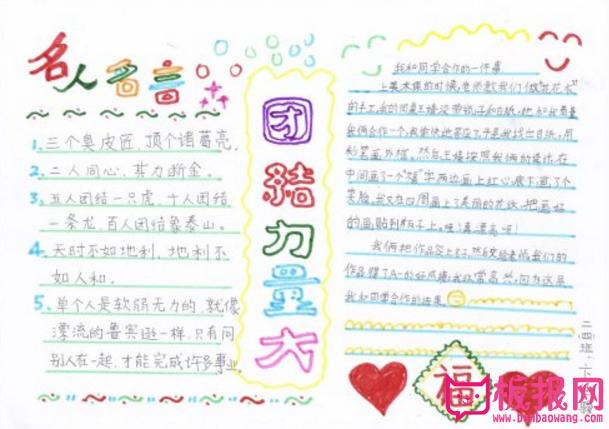 名人名言
1、三个臭皮匠，顶个诸葛亮。
2、二人同心，其力断金。
3、五人团结一只虎，十人团结
一条龙，百人团结象泰山。
4、天时不如地利，地利不
如人和。
5、单个人是软弱无力的，就像
漂流的鲁宾逊一样，只有同
别人在一起，才能完成许多事业。
团結力量大
我和同学合作的一件事
上美术课的时候，老师教我们做
的手工，我的同桌王倩没带
我俩合作一个，我愉快地答应了，于是我找出白纸，用
彩笔画外框，然后王倩按照我俩的
中间画了一个"福"字，两边画上红心，底下画了个
笑脸，我又在四周画上了美丽的花纹，把画好
的画贴到
我们俩把作品交上去了，我们的
作品得了A的好成绩，我非常高兴，因为这是
我和同学合作的结果。
福
二
板报网
www.banbaowang.com